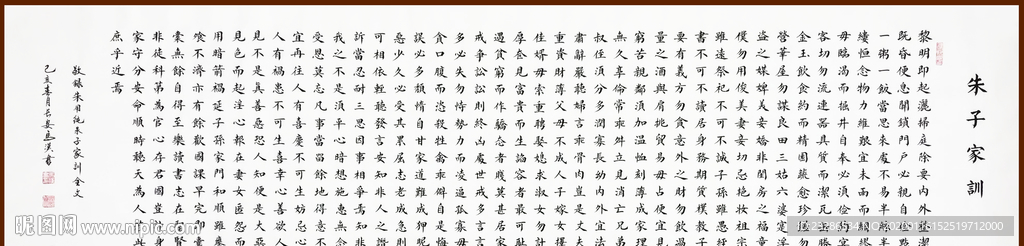 朱子家訓
黎明即起灑掃庭除要内外整潔
既昏便息關鎖門戶必親自
一粥一飯當思來處不易半絲
縷恒念物力維艱宜未雨而綢
毋臨渴而掘井自奉必須儉約
客切勿流連器具質而潔瓦缶勝
金玉飲食約而精園蔬愈珍
營華屋勿謀良田三姑六婆實
盜之媒婢美妾嬌非閨房之福童
僕勿用俊美妻妾切忌艷妝祖宗
雖遠祭祀不可不誠子孫雖愚經
書不可不讀居身務期質樸教
要有義方勿貪意外之財勿飲
量之酒與肩挑貿易毋占便宜見
窮苦親鄰須加溫恤刻薄成家
無久享倫常乖舛立見消亡兄弟
叔侄須分多潤寡長幼內外宜法
肅辭嚴聽婦言乖骨肉豈是丈夫
重資財薄父母不成人子嫁女擇
佳婿毋索重聘娶媳求淑女勿計
厚奩見富貴而生諂容者最可
遇貧窮而作驕態者賤莫甚居家
戒爭訟訟則終凶處世戒多言
多必失勿恃勢力而凌逼孤寡
貪口腹而恣殺牲禽乖僻自是悔
誤必多頹惰自甘家道難成狎昵
惡少久必受其累屈志老成急
可相依輕聽發言安知非人之譖
訴當忍耐三思因事相爭安知非
我之不是須平心暗想施惠無念
受恩莫忘凡事當留餘地得意不
宜再往人有喜慶不可生妒忌心
人有禍患不可生喜幸心善欲人
見不是真善惡恐人知便是大惡
見色而起淫心報在妻女匿怨而
用暗箭禍延子孫家門和順雖
飧不濟亦有餘歡國課早完即囊
橐無餘自得至樂讀書志在聖賢
非徒科第為官心存君國豈計身
家守分安命順時聽天為人
庶乎近焉
敬錄朱用純朱子家訓全文
己亥春月 書
昵图网 www.nipic.com